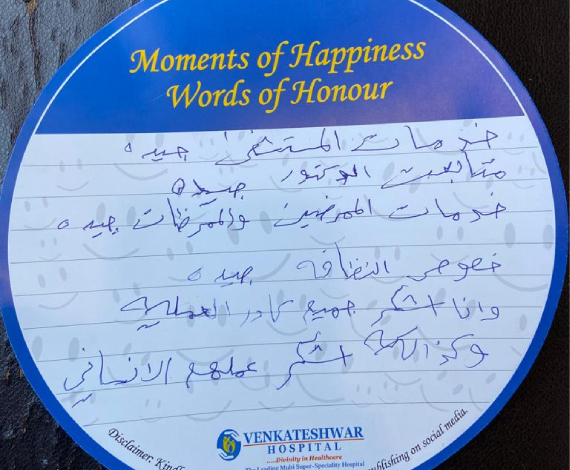 Moments of Happiness
Words of Honour
خدمات المستشفى جيده
متابعت الدكتور جيده
خدمات الممرضين والممرضات جيده
خصوص النظافه جيده
وانا اشكر جميع كادر العمليه
وكذالك اشكر عملهم الانساني
VENKATESHWAR
HOSPITAL
.....Divinity in Healthcare
The Leading Multi Super-Speciality Hospital
Disclaimer:
publishing on social media.